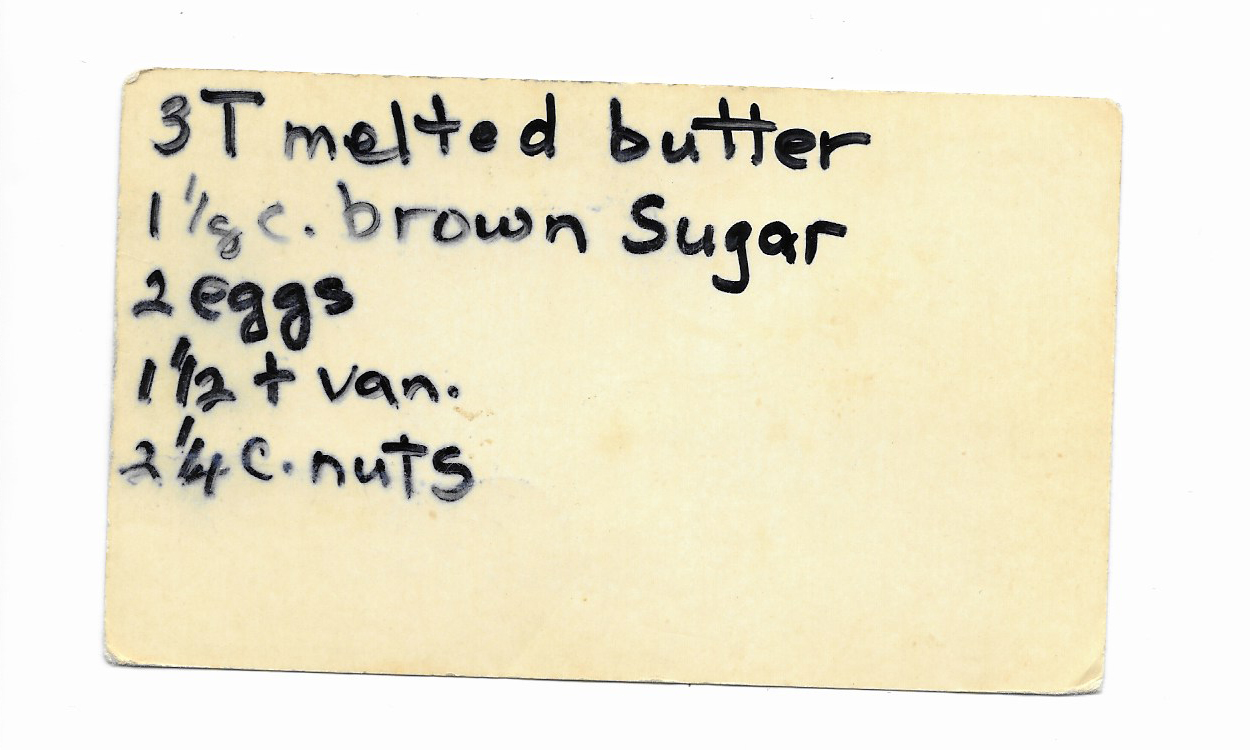 3T melted butter
1 1/8 c. brown Sugar
2 eggs
1 1/2 t van.
2 1/4 c. nuts